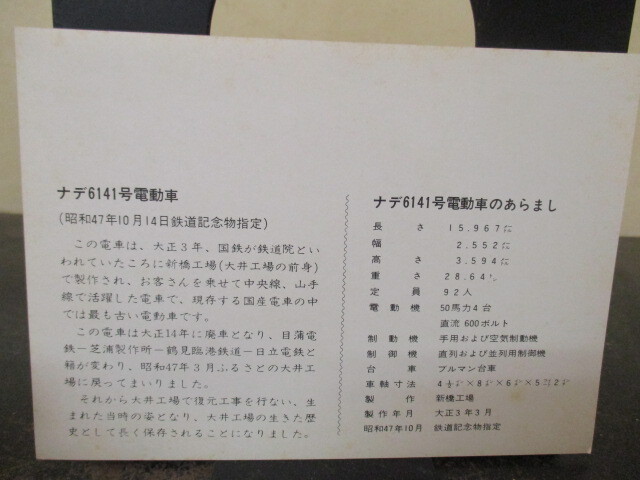 ナデ6141号電動車
(昭和47年10月14日鉄道記念物指定)
この電車は、大正3年、国鉄が鉄道院とい
われていたころに新橋工場(大井工場の前身)
で製作され、お客さんを乗せて中央線、山手
線で活躍した電車で、現存する国産電車の中
では最も古い電動車です。
この電車は大正14年に廃車となり、目蒲電
鉄－芝浦製作所－鶴見臨港鉄道－日立電鉄と
籍が変わり、昭和47年3月ふるさとの大井工
場に戻ってまいりました。
それから大井工場で復元工事を行ない、生
まれた当時の姿となり、大井工場の生きた歴
史として長く保存されることになりました。
ナデ6141号電動車のあらまし
長さ 15.967㍍
幅 2.552㍍
高さ 3.594㍍
重さ 28.64㌧
定員 92人
電動機 50馬力4台
直流 600ボルト
制動機 手用および空気制動機
制御機 直列および並列用制御機
台車 ブルマン台車
車軸寸法
製作 新橋工場
製作年月 大正3年3月
昭和47年10月 鉄道記念物指定